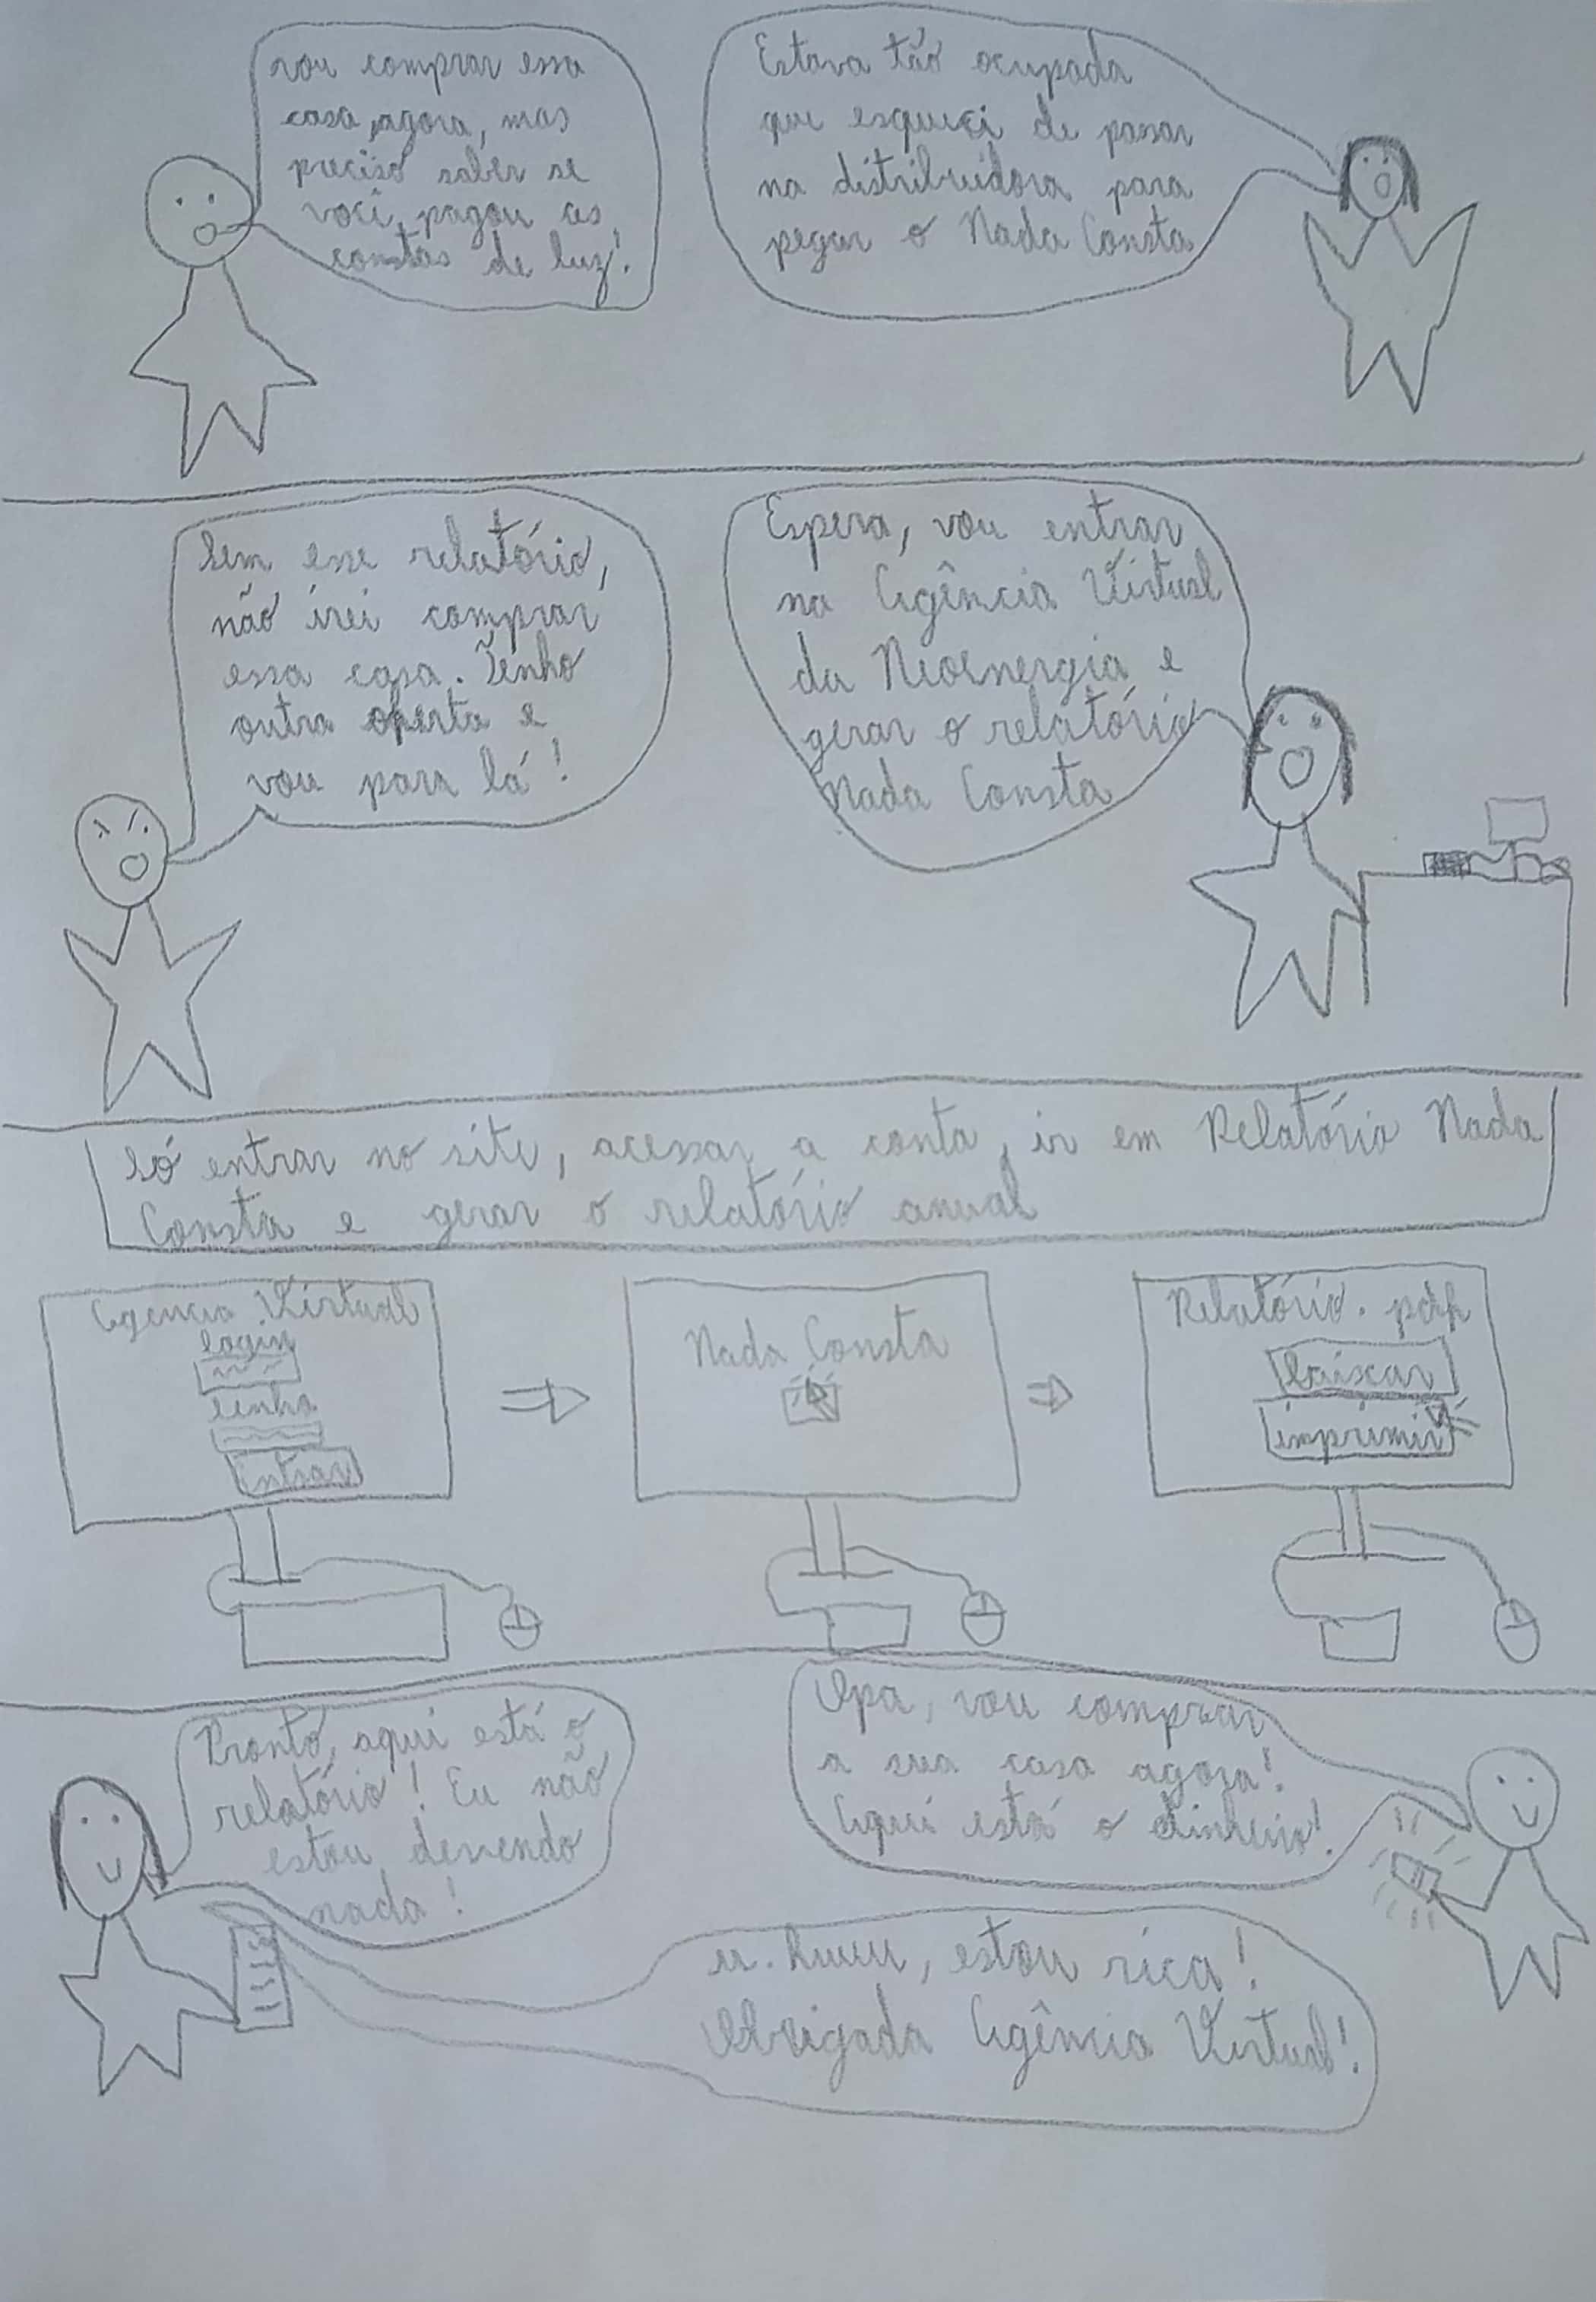 vou comprar essa
casa agora, mas
preciso saber se
você pagou as
contas de luz!
Estava tão ocupada
que esqueci de passar
na distribuidora para
pegar o Nada Consta
Sem esse relatório,
não irei comprar
essa casa. Tenho
outra oferta e
vou para lá!
Espera, vou entrar
na Agência Virtual
da Neoenergia e
gerar o relatório
Nada Consta
Só entrar no site, acessar a conta, ir em Relatório Nada
Consta e gerar o relatório anual
Agencia Virtual
login
senha
Entrar
Nada Consta
Relatório.pdf
baixar
imprimir
Pronto, aqui está o
relatório! Eu não
estou devendo
nada!
Opa, vou comprar
a sua casa agora!
Aqui está o dinheiro!
u.huuu, estou rica!
Obrigada Agência Virtual!